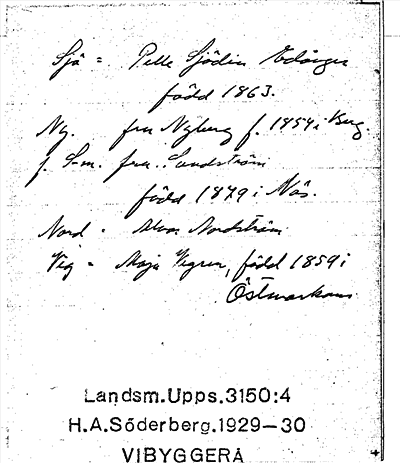 Sjö = Pelle Sjödin Edånger
född 1863.
Ny. fru Nyberg f. 1854 i Berg.
f. S-m. fru Sundström
född 1849 i Näs.
Nord - Alva Nordström
Vig - Maja Vigren, född 1859 i
Östmarkum
Landsm.Upps.3150:4
H.A.Söderberg.1929-30
VIBYGGERÅ